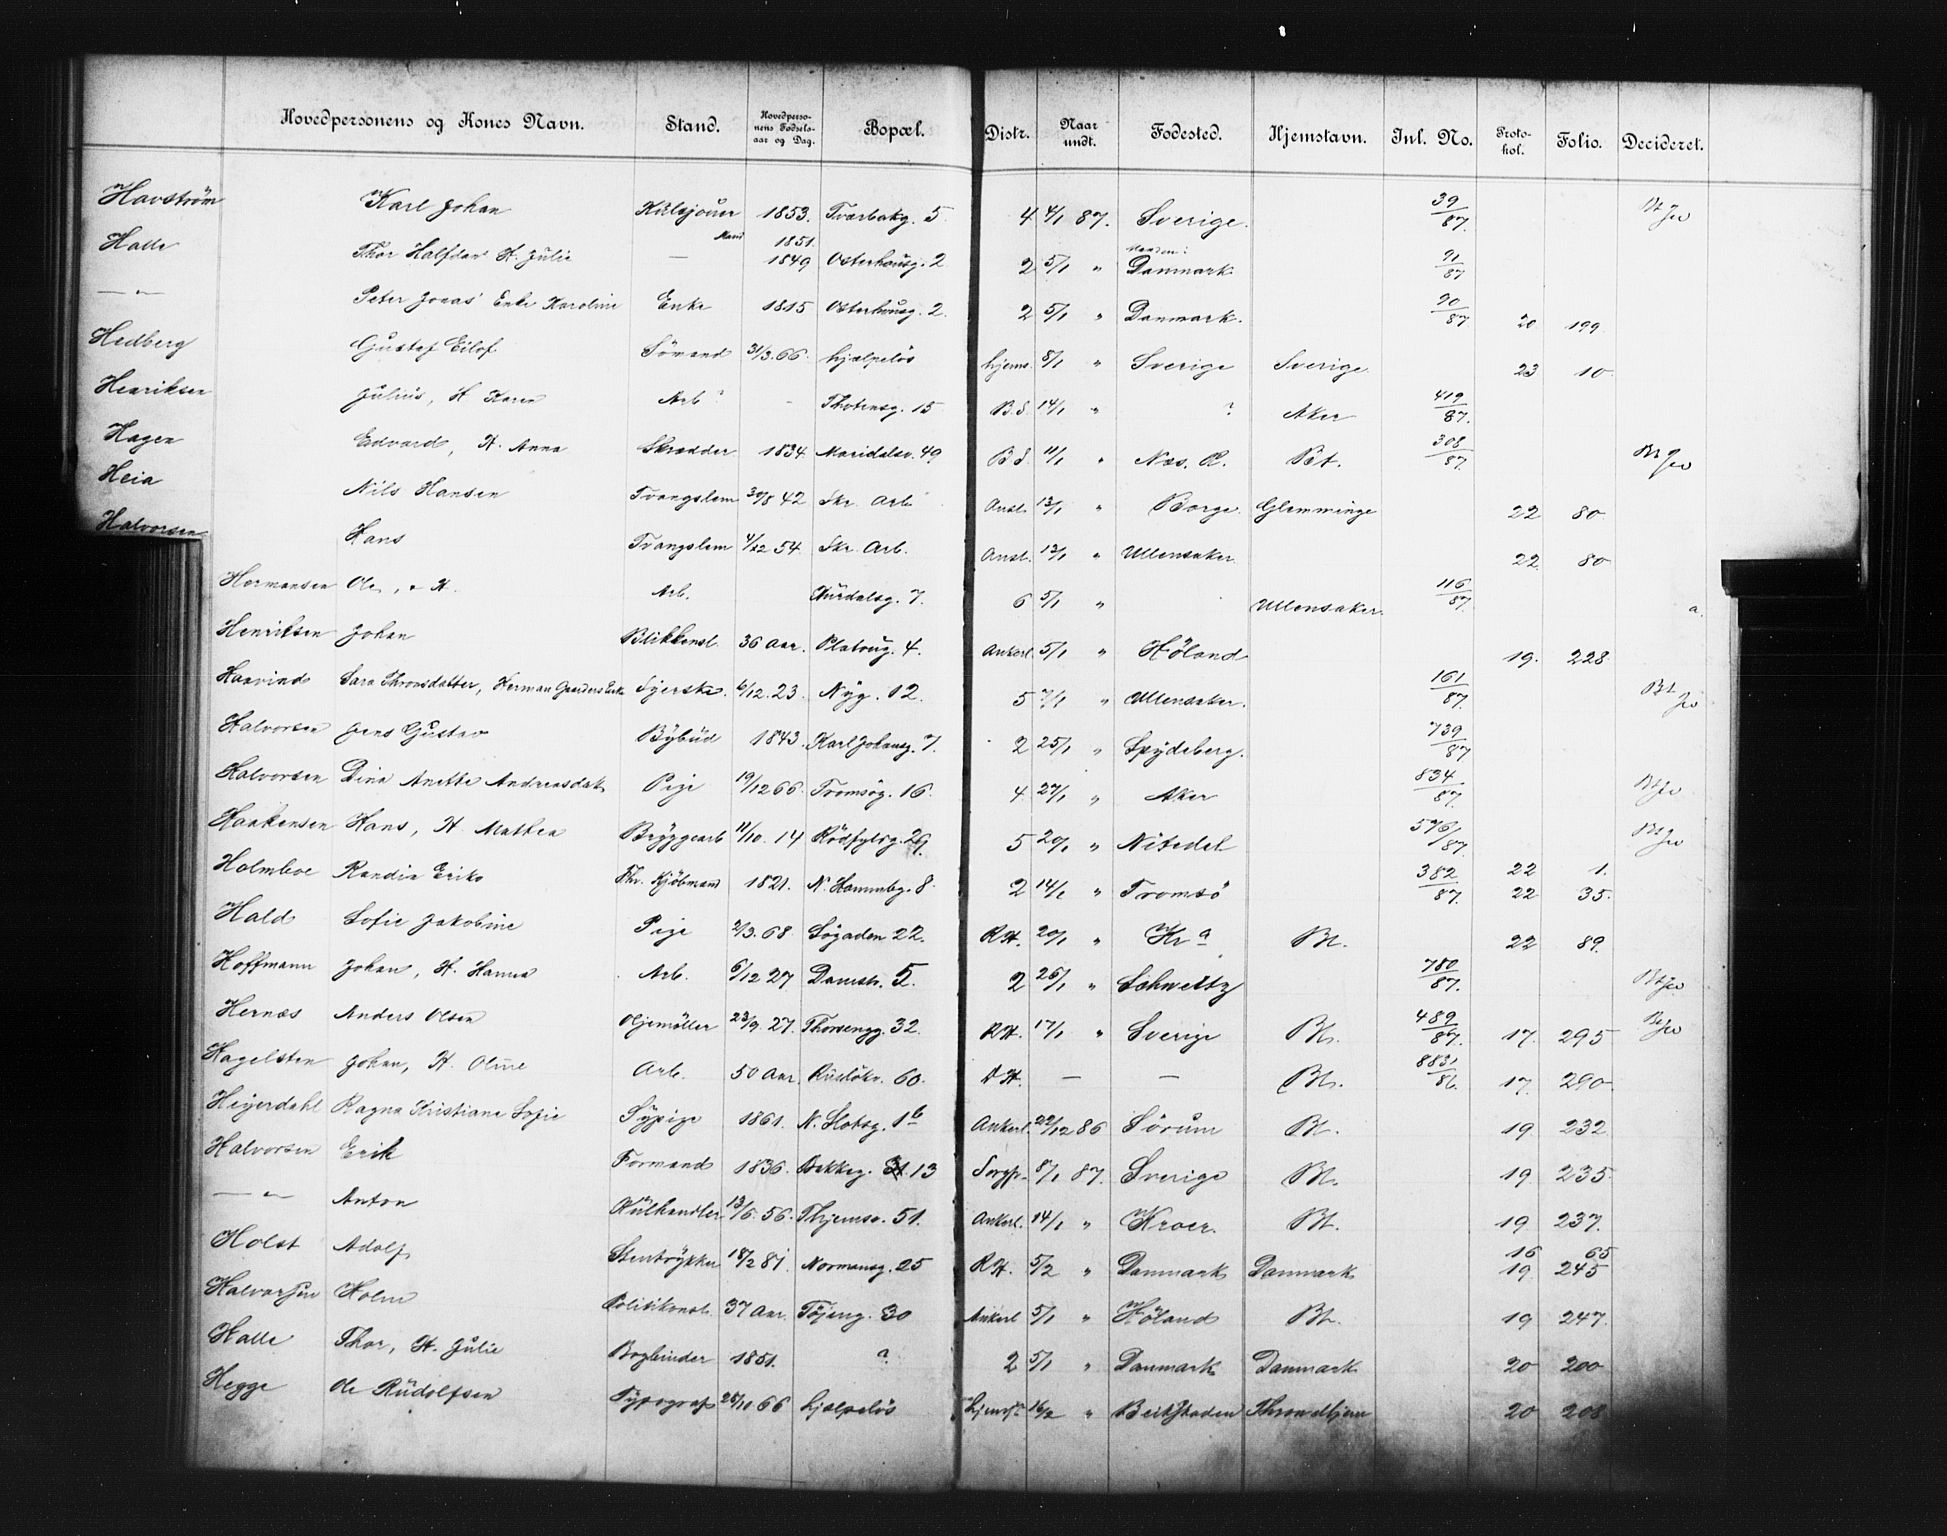 Hovedpersonens og Kones Navn. Stand. Hovedpersonens Fødselsaar og Dag. Bopæl. Distr. Naar undt. Fødested. Hjemstavn. Inl. No. Protokol. Folio. Decideret.
Havström Karl Johan 1853. Tværbakg. 5 4 4/1 87. Sverige. 39/87.
Halle Thor Halfdan H. Julie — Mand 1851. 1849 Osterhausg. 2 2 5/1 " Manden: Danmark 91/87
— " — Peter Jonas Enke Karoline Enke 1815 Osterhausg. 2. 2 5/1 " Danmark. 90/87 20 199
Hedberg Gustaf Eilof Sömand 31/3.66. hjælpelös hjems. 8/1 " Sverige Sverige. 23 10.
Henriksen Julius, H. Karen Arb? - Thotensg. 15 B.S. 14/1 " ? Aker 419/87.
Hagen Edvard, H. Anna Skrædder 1834 Maridalsv. 49 B.S. 11/1 " Næs. R. Bt. 308/87.
Heia Nils Hansen Tvangslem 30/8 42 Skr. Arb. Anst. 13/1 " Borge. Glemminge 22 80.
Halvorsen Hans Tvangslem 4/12 54. Skr. Arb. Anst. 13/1 " Ullensaker. 22. 80
Hermansen Ole, + H. Arb. Hurdalsg. 7. 6 5/1 " Ullensaker. 116/87. a.
Henriksen Johan Blikkensl. 36 Aar. Platoug. 4. Ankerl. 5/1 " Höland 19. 228
Haavind Sara Thronsdatter, Herman Gaarders Enke Syerske. 6/12.23. Nyg. 12. 5 7/1 " Ullensaker. 161/87. Bt
Halvorsen Jens Gustav Bybud 1843. Karl Johansg. 7. 2 25/1 " Spydeberg. 739/87
Halvorsen Dina Anette Andreasdat. Pige 19/12 66. Tromsög. 16. 4 27/1 " Aker 834/87.
Haakensen Hans, H. Mathea Bryggearb 11/10. 14 Rödfylsg. 29. 5 20/1 " Nitedal 576/87.
Holmboe Randia Eriks Fhr. Kjöbmand 1821. N. Hammbg. 8. 2 14/1 " Tromsö 382/87. 22 1. 22 35.
Hald Sofie Jakobine Pige 2/3.68. Søgaden 22. RH. 20/1 " Kra Bt. 22 89.
Hoffmann Johan, H. Hanna Arb. 6/12 27 Damstr. 5. 2 26/1 " Schweitz 780/87.
Hernæs Anders Olsen Oljemöller 23/9. 27. Thorsengg. 32. RH. 17/1 " Sverige Bt. 489/87. 17. 295
Hagelsten Johan, H. Oline Arb. 50 Aar. Ruslökv. 60. — — Bt. 8831/86. 17. 290
Heyerdahl Ragna Kristiane Sofie Sypige 1861. N. Slotsg. 1b Ankerl. 22/12 86 Sörum Bt. 19 232
Halvorsen Erik Formand 1836. Bakkeg. 13 8/1 87. Sverige Bt. 19 235
— " — Anton Kulhandler 13/6. 56. Thjemsv. 51. Ankerl. 14/1 " Kroer. Bt. 19 237.
Holst Adolf Stentrykker 18/2 81. Normansg. 25 RH. 5/2 " Danmark Danmark 16 65 19 245
Halvorsen Holm Politikonst. 37 Aar. Töjeng. 30 Ankerl 5/1 " Höland Bt. 19 247.
Halle Thor, H. Julie Bogbinder 1851. ? 2 5/1 " Danmark Danmark 20 200
Hegge Ole Rudolfsen Typograf 25/10 66 hjælpelös hjemst. 16/2 " Beitstaden Throndhjem 20 208